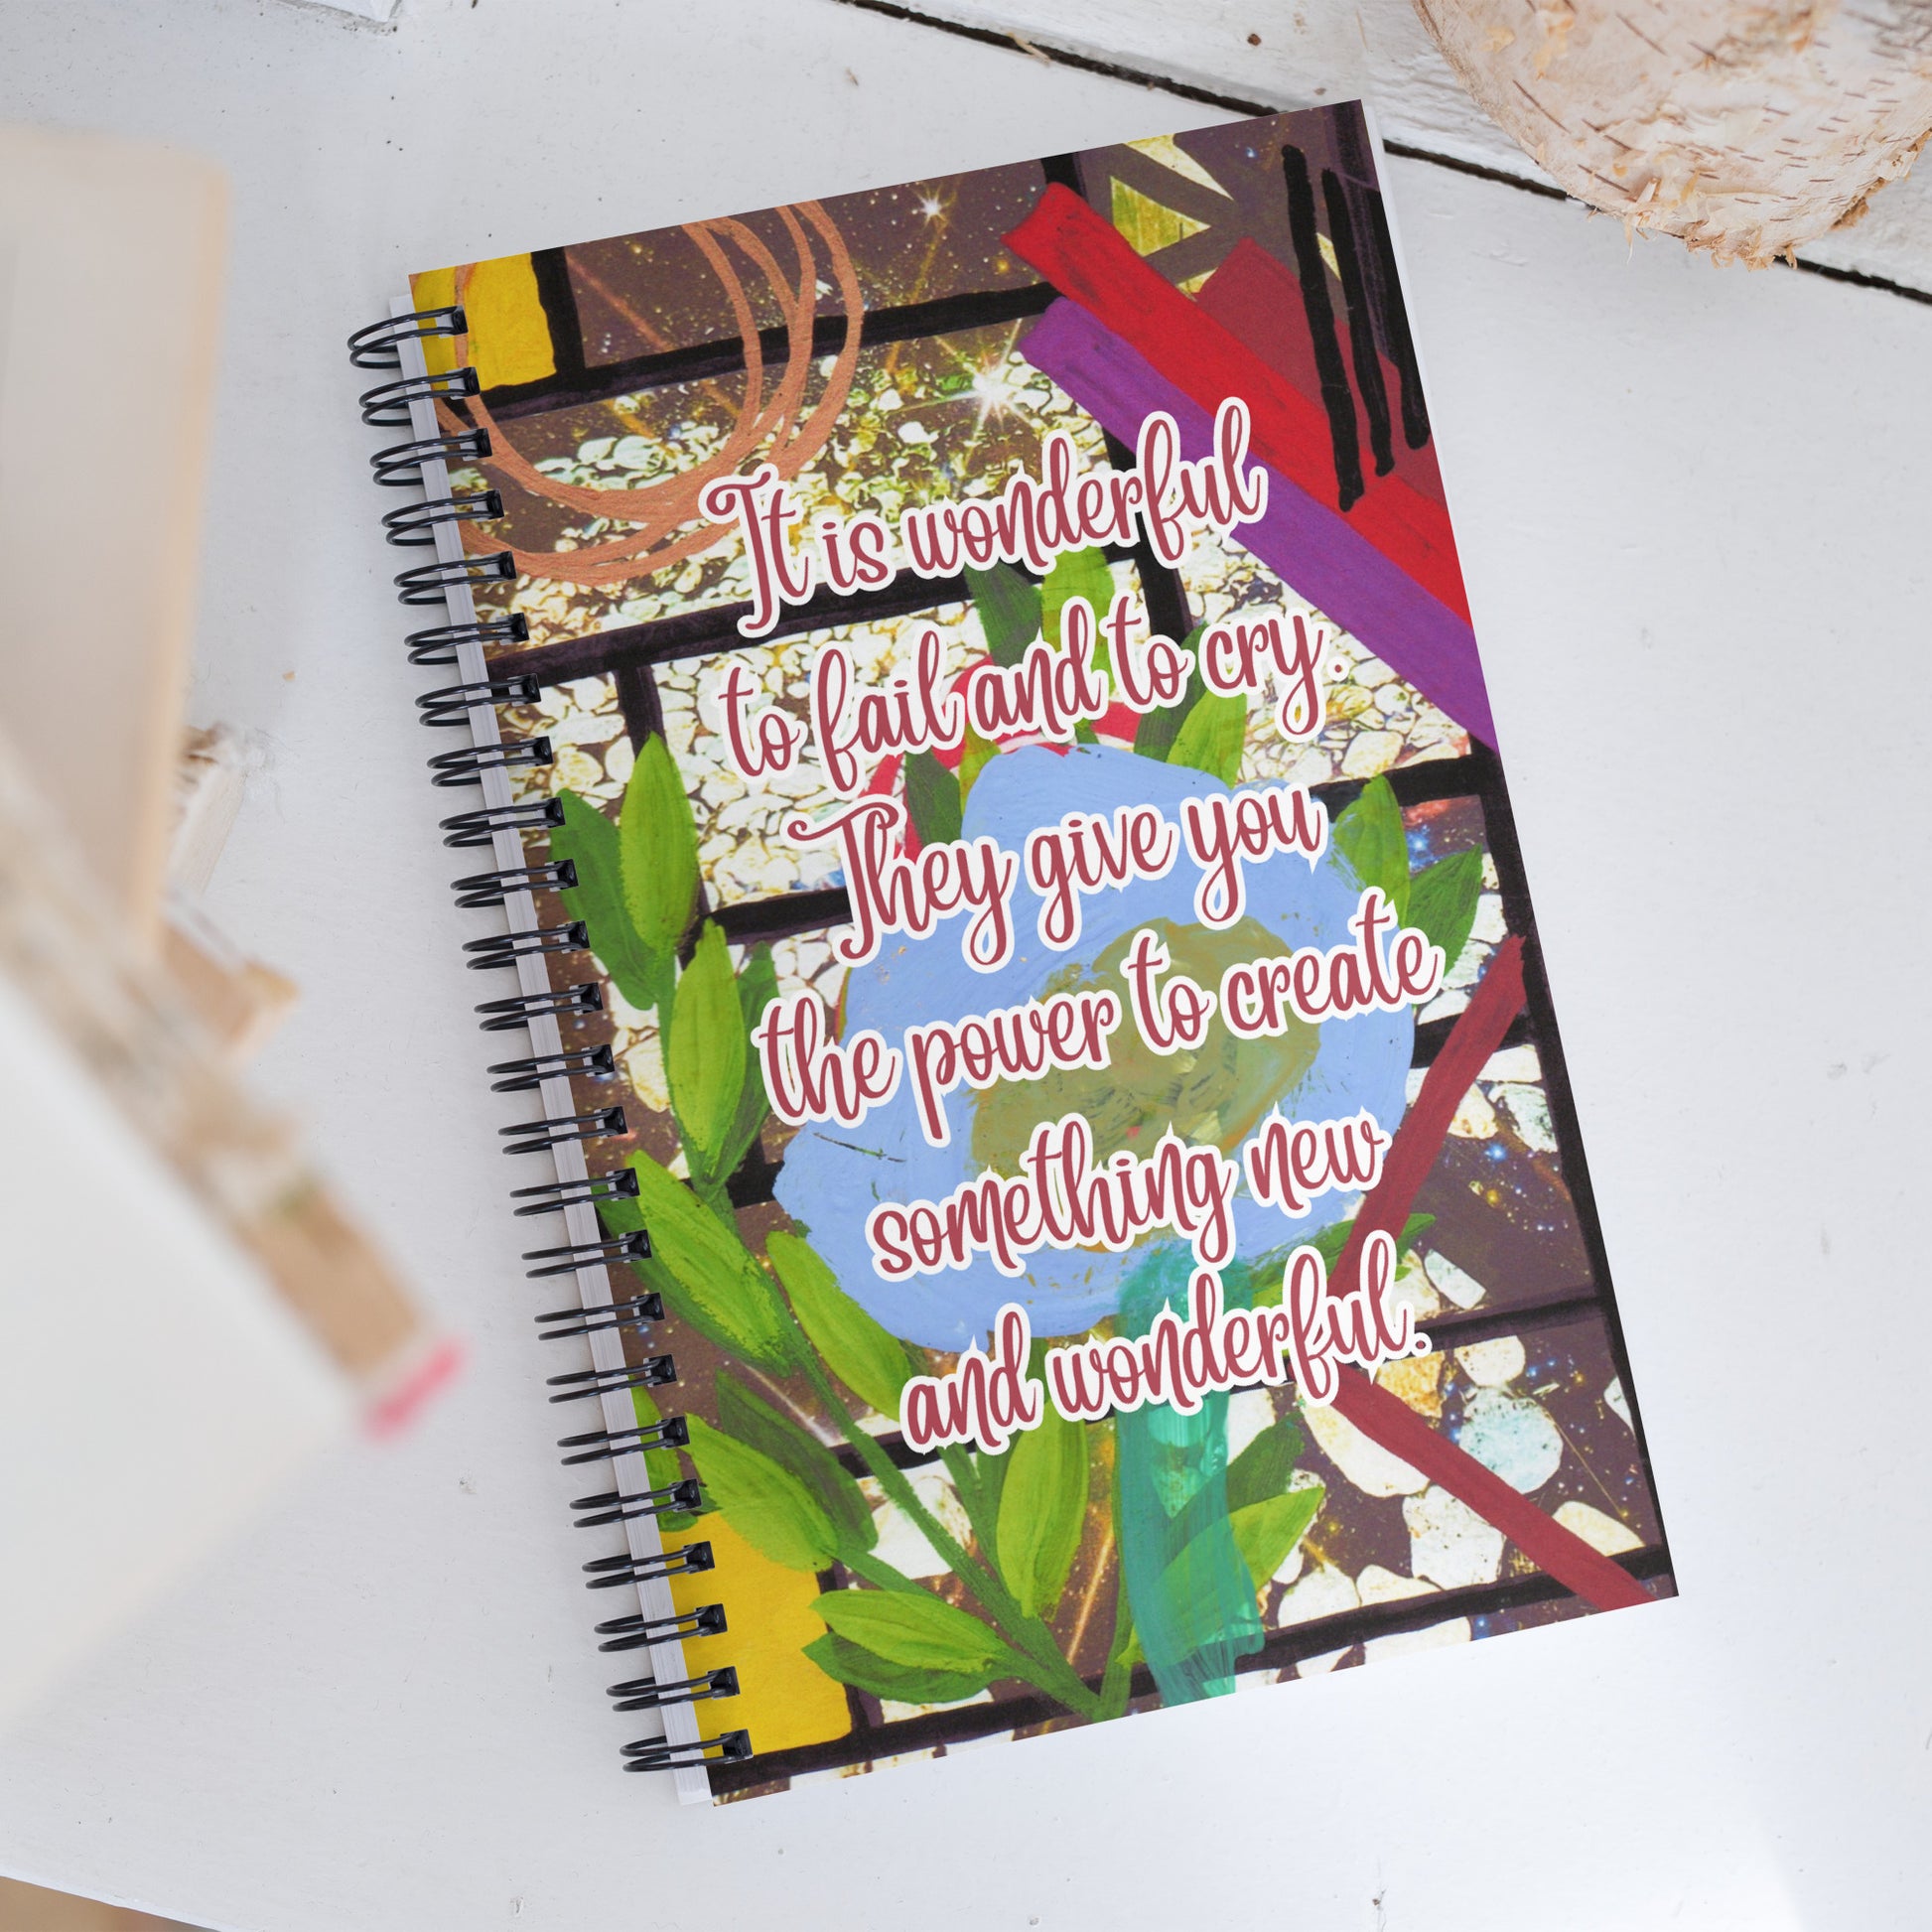 It is wonderful
to fail and to cry.
They give you
the power to create
something new
and wonderful.